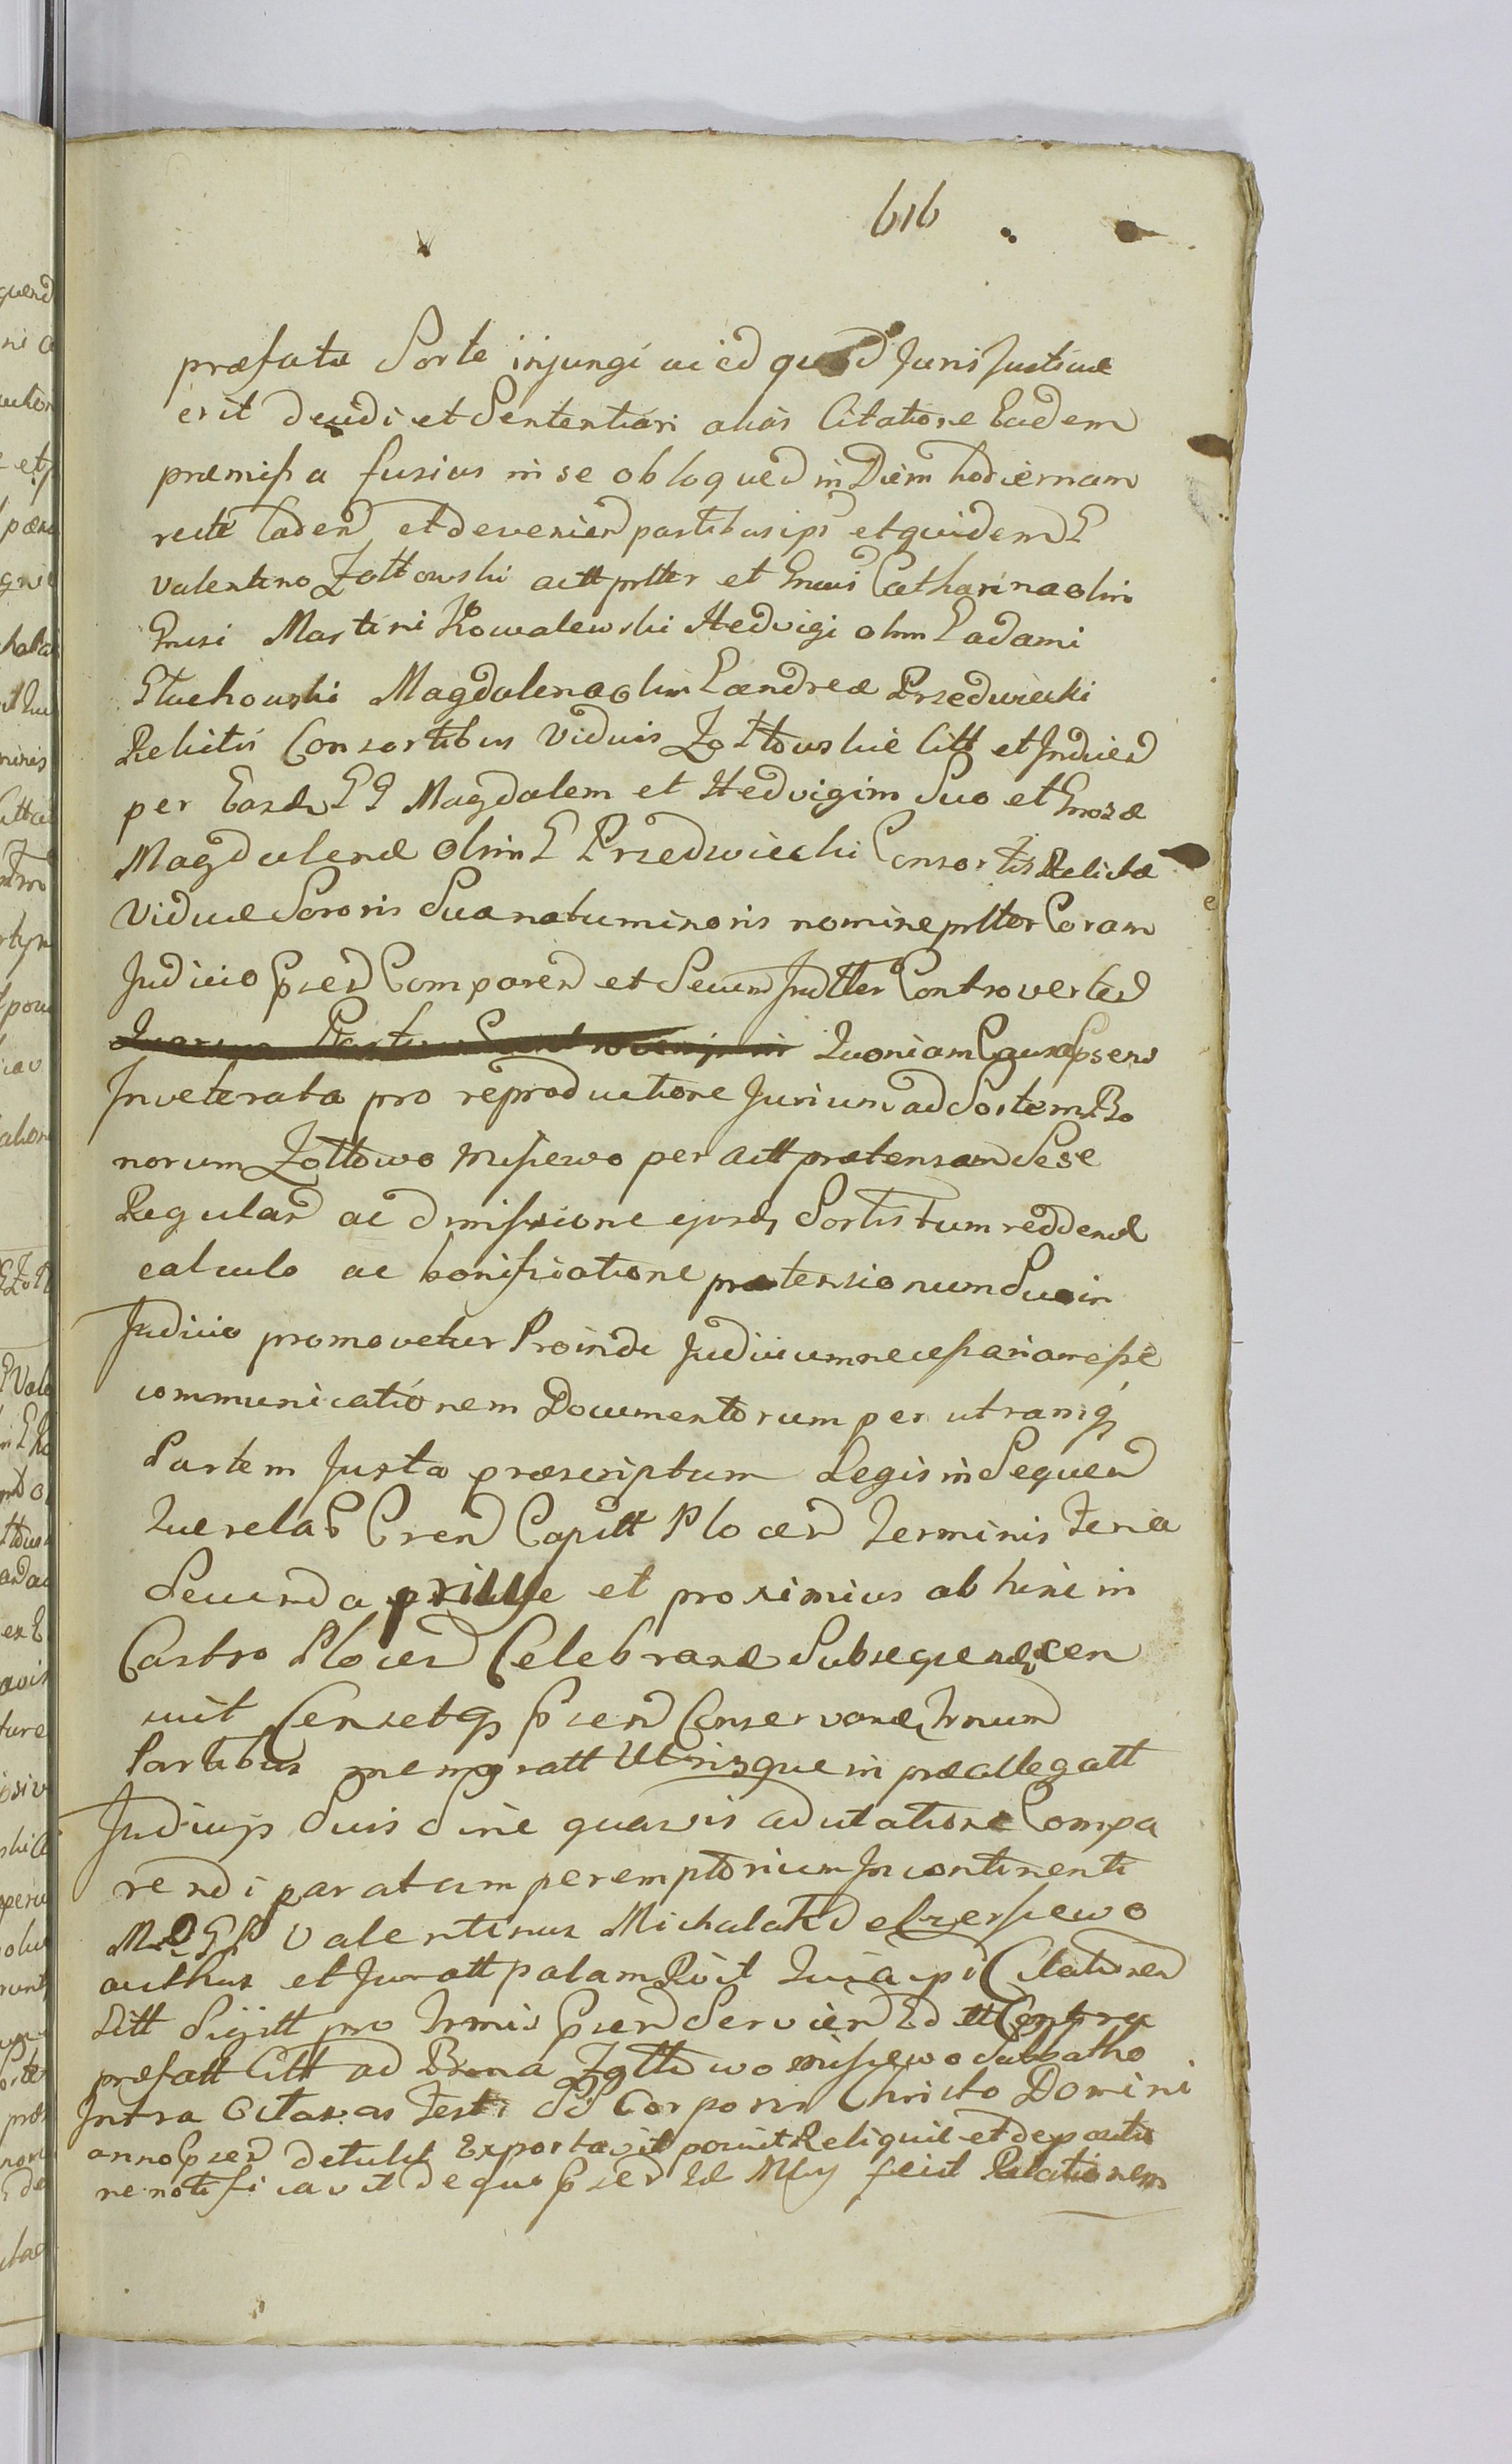 616
præfata Sorte injungi ac id quod Juris Justitiæ
erit decidi et Sententiari alias Citatione Eadem
præmissa fusius in se obloquen in Diem hodiernam
recte Caden et devenien partibus ipś et quidem G
Valentino Zołtowski actt prtter et Gnosis Catharina olim
Gnosi Martini Kowalewski Hedvigi olim G Adami
Głuchowski Magdalena olim G Andreæ Przedwiecki
Relictis Consortibus Viduis Zołtowskie Citt et Inducen
per Easdem GG Magdalem et Hedvigim Suo et Gnosæ
Magdalenæ olim G Przedwiecki Consortis Relictæ
Viduæ Sororis Sua natu minoris nomine prtter Coram
Judicio Psen Comparen et Secum Judtter Controverten
Quoniam Causa Psens
Inveterata pro reproductione Jurium ad Sortem Bo
norum Zołtowo Missiewo per Actt prætensam Sese
Regulan ac dimissione ejusdem Sortis tum reddend
calculo ac bonificatione prætensionum Suo in
Judicio promovetur Proinde Judicium necessariam esse
communicationem Documentorum per utramq
Partem Juxta præscriptum Legis in Sequen
Querelar Gren Capitt Plocen Terminis Feria
Secunda et proximius ab hinc in
Castro Plocen Celebrand Subsequend cen
suit Censetq Psen Conservand Trmum
Partibus memoratt Utrisque in præallegatt
Judicijs Suis Sine quavis adcitatione Compa
rendi paratum peremptorium Incontinenti
Valentinus Michalak de
authus et Juratt palam Rcit Quia ipś Citationen
Litt Sigitt pro Trmis Psen Servien Ed tt Contra
præfatt Citt ad Bona Zołtowo Missiewo Sabbatho
Intra Octavas Festi SS Corporis Christo Domini
anno Psen detulit Exportavit posuit Reliquit et de positio
ne notificavit de quo Psen Id Mtry fecit Relationem